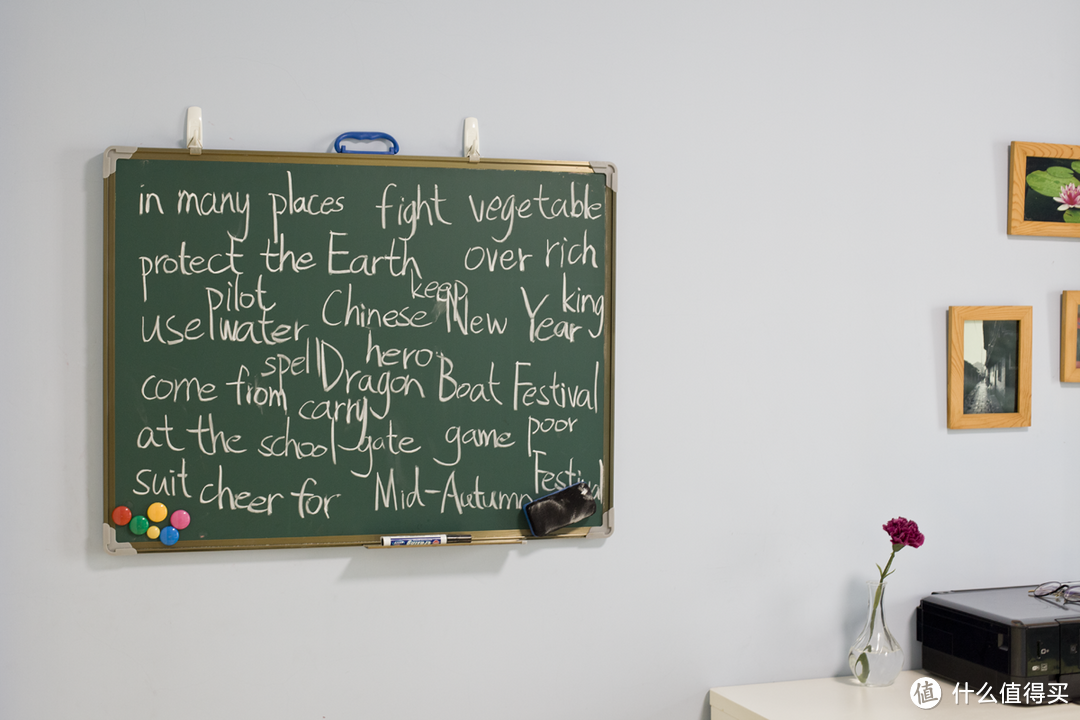 in many places fight vegetable
protect the Earth over rich
pilot keep king
use water Chinese New Year
spell hero
come from Dragon Boat Festival
carry poor
at the school gate game
suit cheer for Mid-Autumn Festival
值 什么值得买